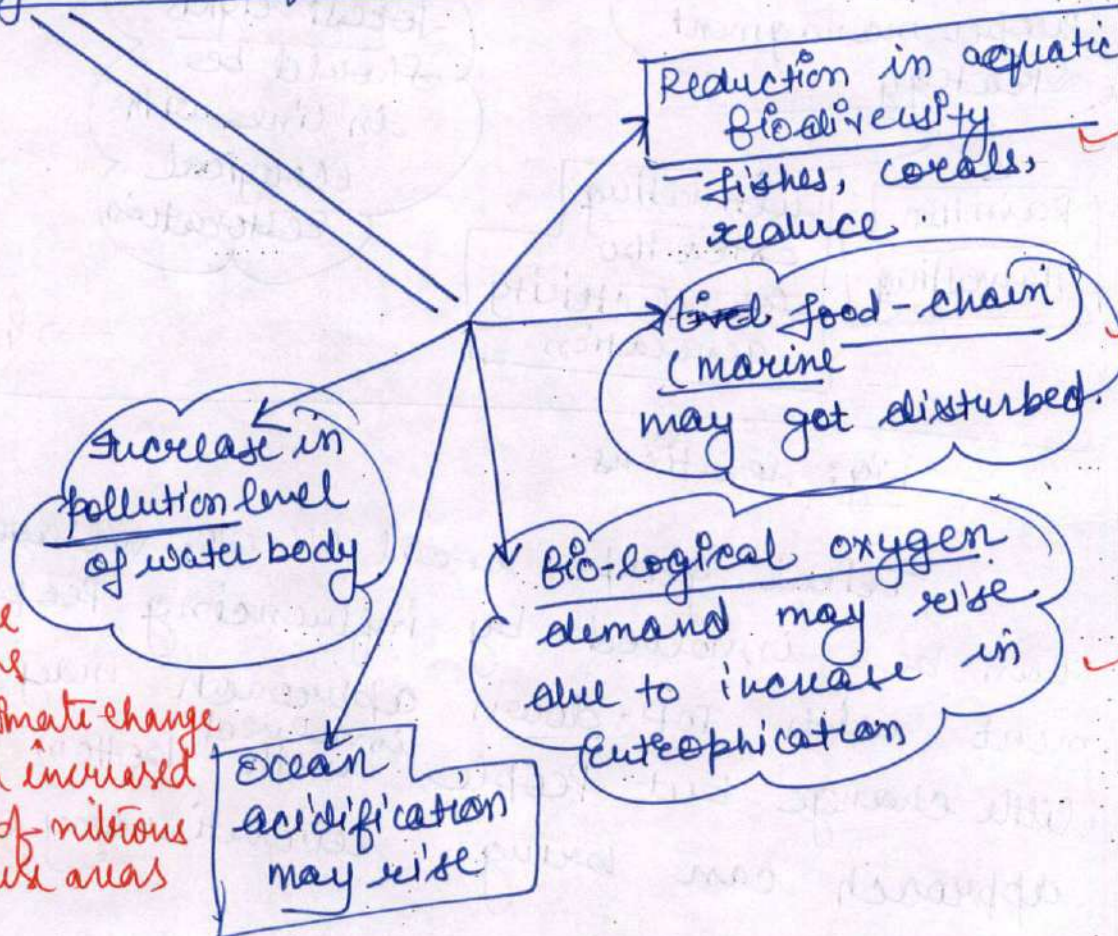 Reduction in aquatic
biodiversity
- fishes, corals,
reduce
food-chain
(marine
may got disturbed.
Increase in
pollution level
of water body
Bio-logical oxygen
demand may rise
due to increase in
Eutrophication
Ocean
acidification
may rise
climate change
increased
of nitrous
areas